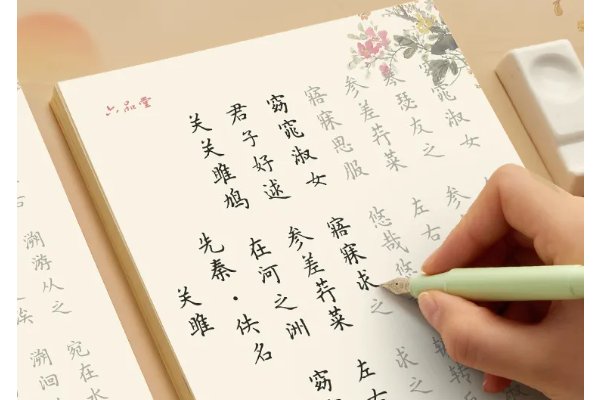 六品堂
关雎
先秦·佚名
关关雎鸠
在河之洲
窈窕淑女
君子好逑
参差荇菜
左右
窈
窈窕淑女
寤寐求之
寤寐思服
悠哉悠
求之
参差荇菜
左右
琴瑟友之
参
窈窕淑女
溯游从之
宛在水
溯洄